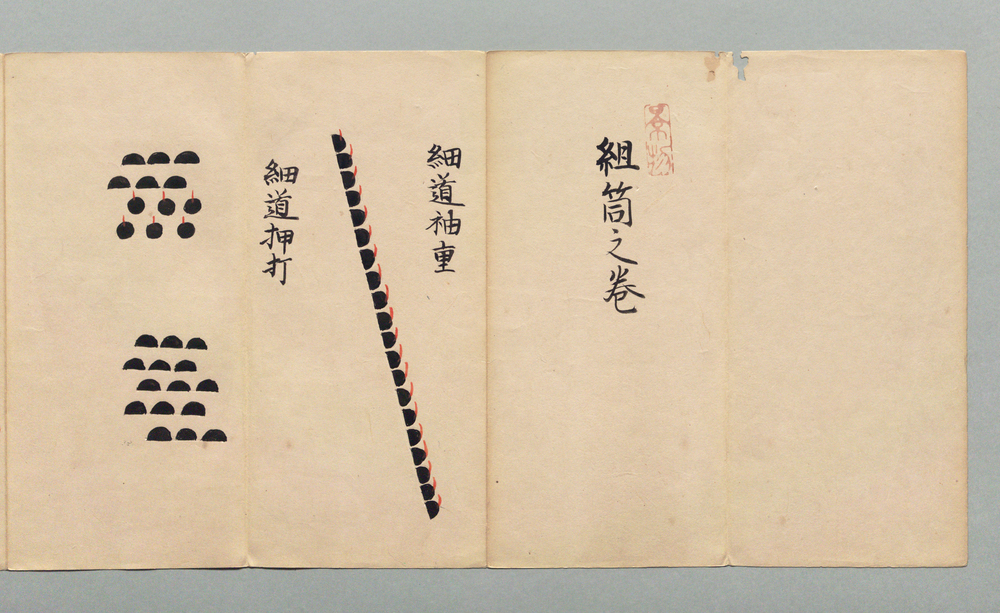 組筒之巻
細道袖重
細道押打